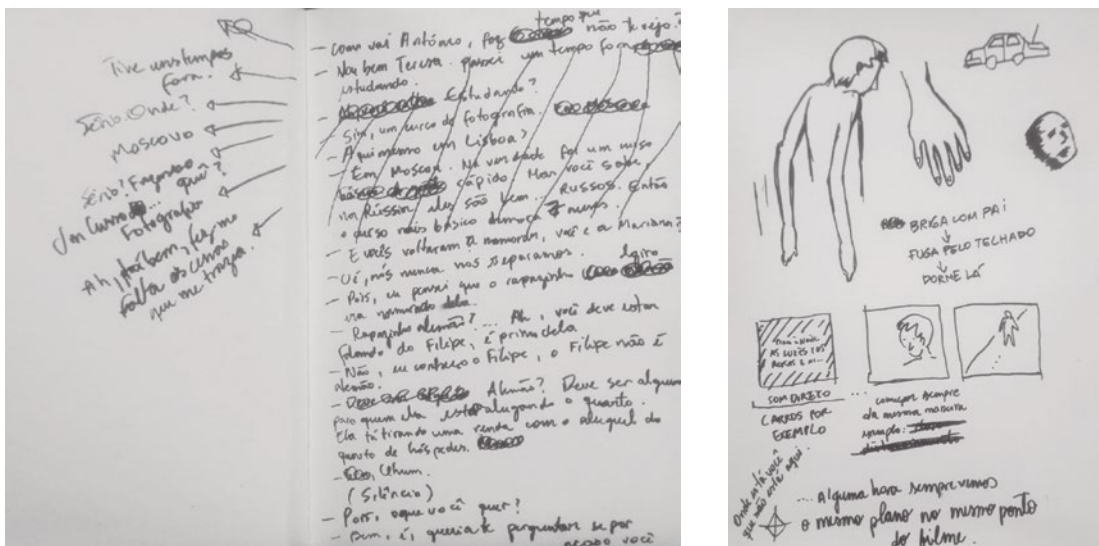 Tive uns tempos
fora.
Sério? Onde?
Moscovo
Sério? Fazendo
quê?
Um Curso de...
Fotografia
Ah, tá bem, fez-me
falta os cursos
que me trazia.
tempo que
— Como vai António, faz não te vejo?
— Vou bem Teresa. passei um tempo fora
estudando.
— Estudando?
— Sim, um curso de fotografia.
— Aqui mesmo em Lisboa?
— Em Moscou. Na verdade foi um curso
rápido. Mas você sabe,
na Rússia eles são bem... RUSSOS. Então
o curso mais básico demora 7 meses.
— E vocês voltaram a namorar, você e a Mariana?
— Ué, nós nunca nos separamos.
— Pois, eu pensei que o rapazinho
era namorado dela.
— Rapazinho alemão? ... Ah, você deve estar
falando do Filipe, é primo dela
— Não, eu conheço o Filipe, o Filipe não é
alemão.
— Alemão? Deve ser alguém
para quem ela está alugando o quarto.
Ela tá tirando uma renda com o aluguel do
quarto de hóspedes.
— Uhum.
(Silêncio)
— Pois, o que você quer?
— Bem, é, queria te perguntar se por
acaso você
BRIGA COM PAI
↓
FUGA PELO TELHADO
↓
DORME LÁ
AS LUZES DOS
SOM DIRETO
CARROS POR
EXEMPLO
... começar sempre
da mesma maneira
exemplo:
Onde está você
que não está aqui
.... Alguma hora sempre vemos
o mesmo plano no mesmo ponto
do filme.